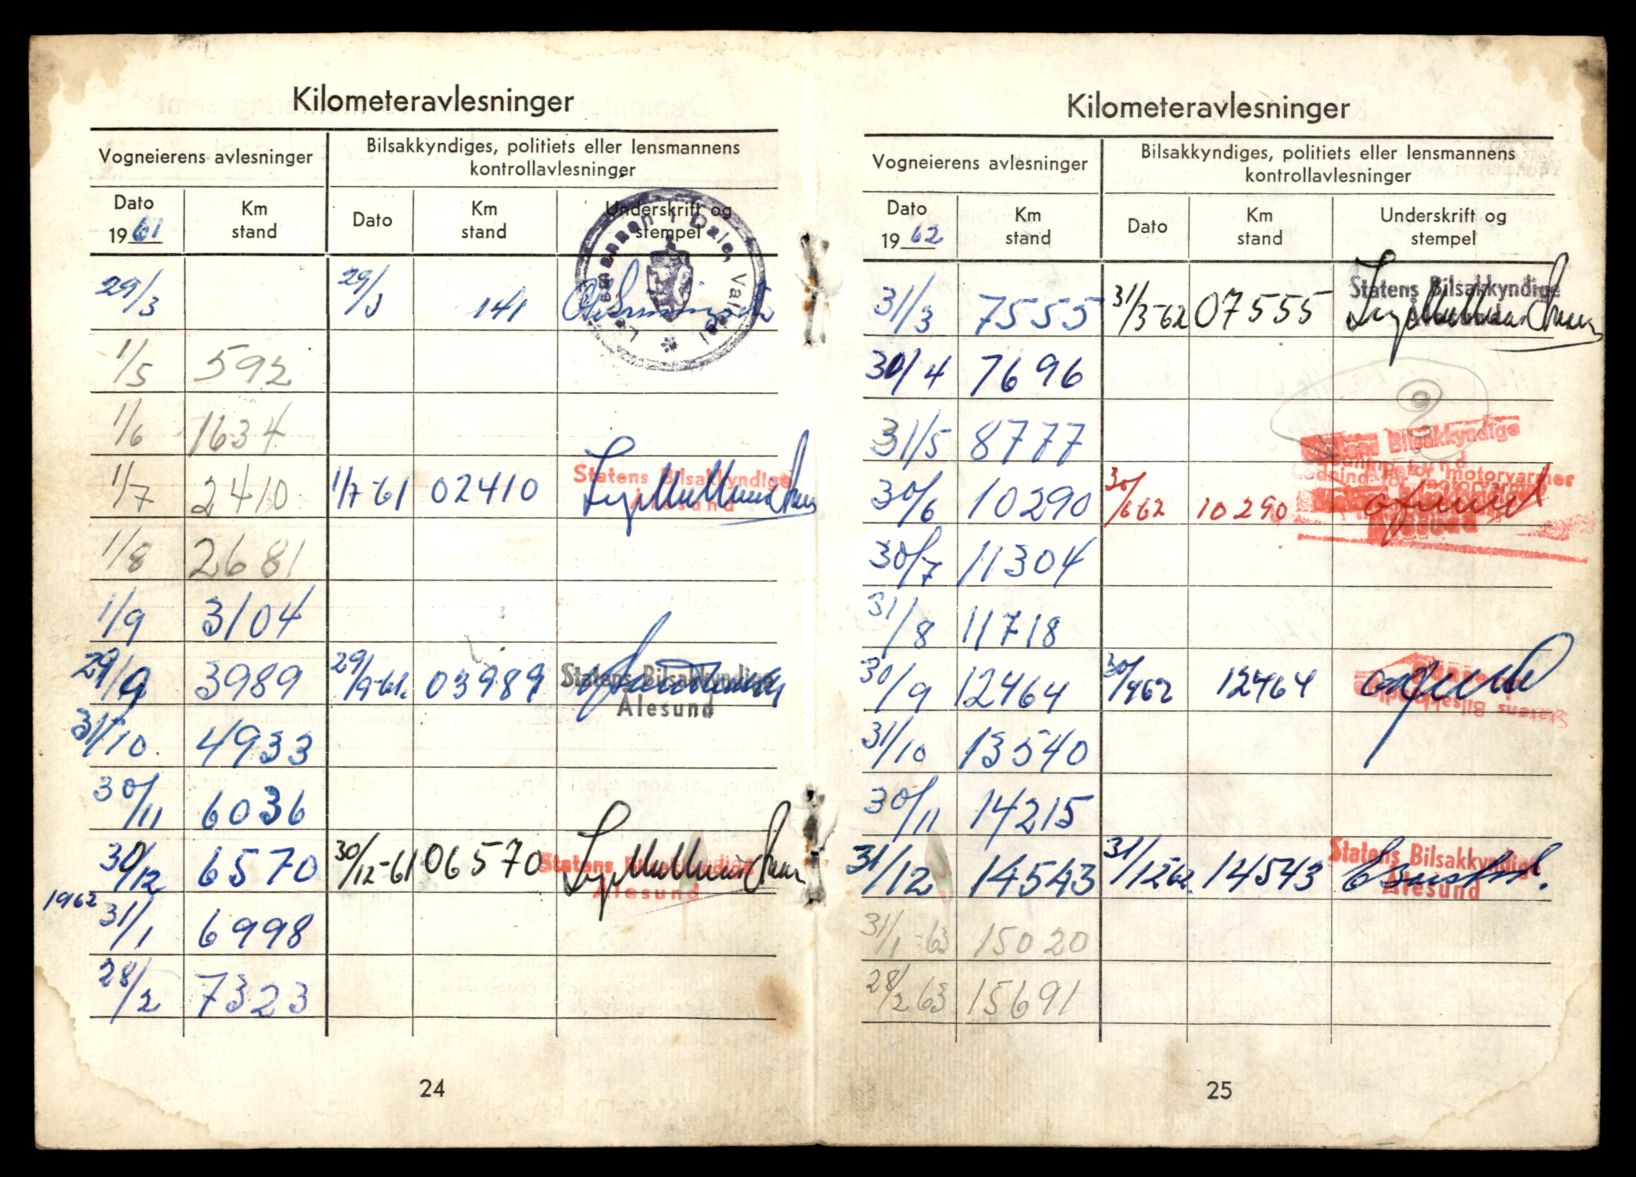 Kilometeravlesninger
Vogneierens avlesninger
Bilsakkyndiges, politiets eller lensmannens
kontrollavlesninger
Dato
1961
Km
stand
Dato
Km
stand
Underskrift og
stempel
29/3 29/3 141
1/5 592
1/6 1634
1/7 2410 1/7-61 02410 Statens Bilsakkyndige
Ålesund
1/8 2681
1/9 3104
29/9 3989 29/9-61 03989 Statens Bilsakkyndige
Ålesund
31/10 4933
30/11 6036
30/12 6570 30/12-61 06570 Statens Bilsakkyndige
Ålesund
1962
31/1 6998
28/2 7323
24
Kilometeravlesninger
Vogneierens avlesninger
Bilsakkyndiges, politiets eller lensmannens
kontrollavlesninger
Dato
1962
Km
stand
Dato
Km
stand
Underskrift og
stempel
31/3 7555 31/3-62 07555 Statens Bilsakkyndige
30/4 7696
31/5 8777
Bilsakkyndige
30/6 10290 30/6 62 10290
30/7 11304
31/8 11718
30/9 12464 30/9 62 12464
Statens Bilsakkyndige
31/10 13540
30/11 14215
31/12 14543 31/12 62 14543 Statens Bilsakkyndige
Ålesund
31/1-63 15020
28/2 63 15691
25